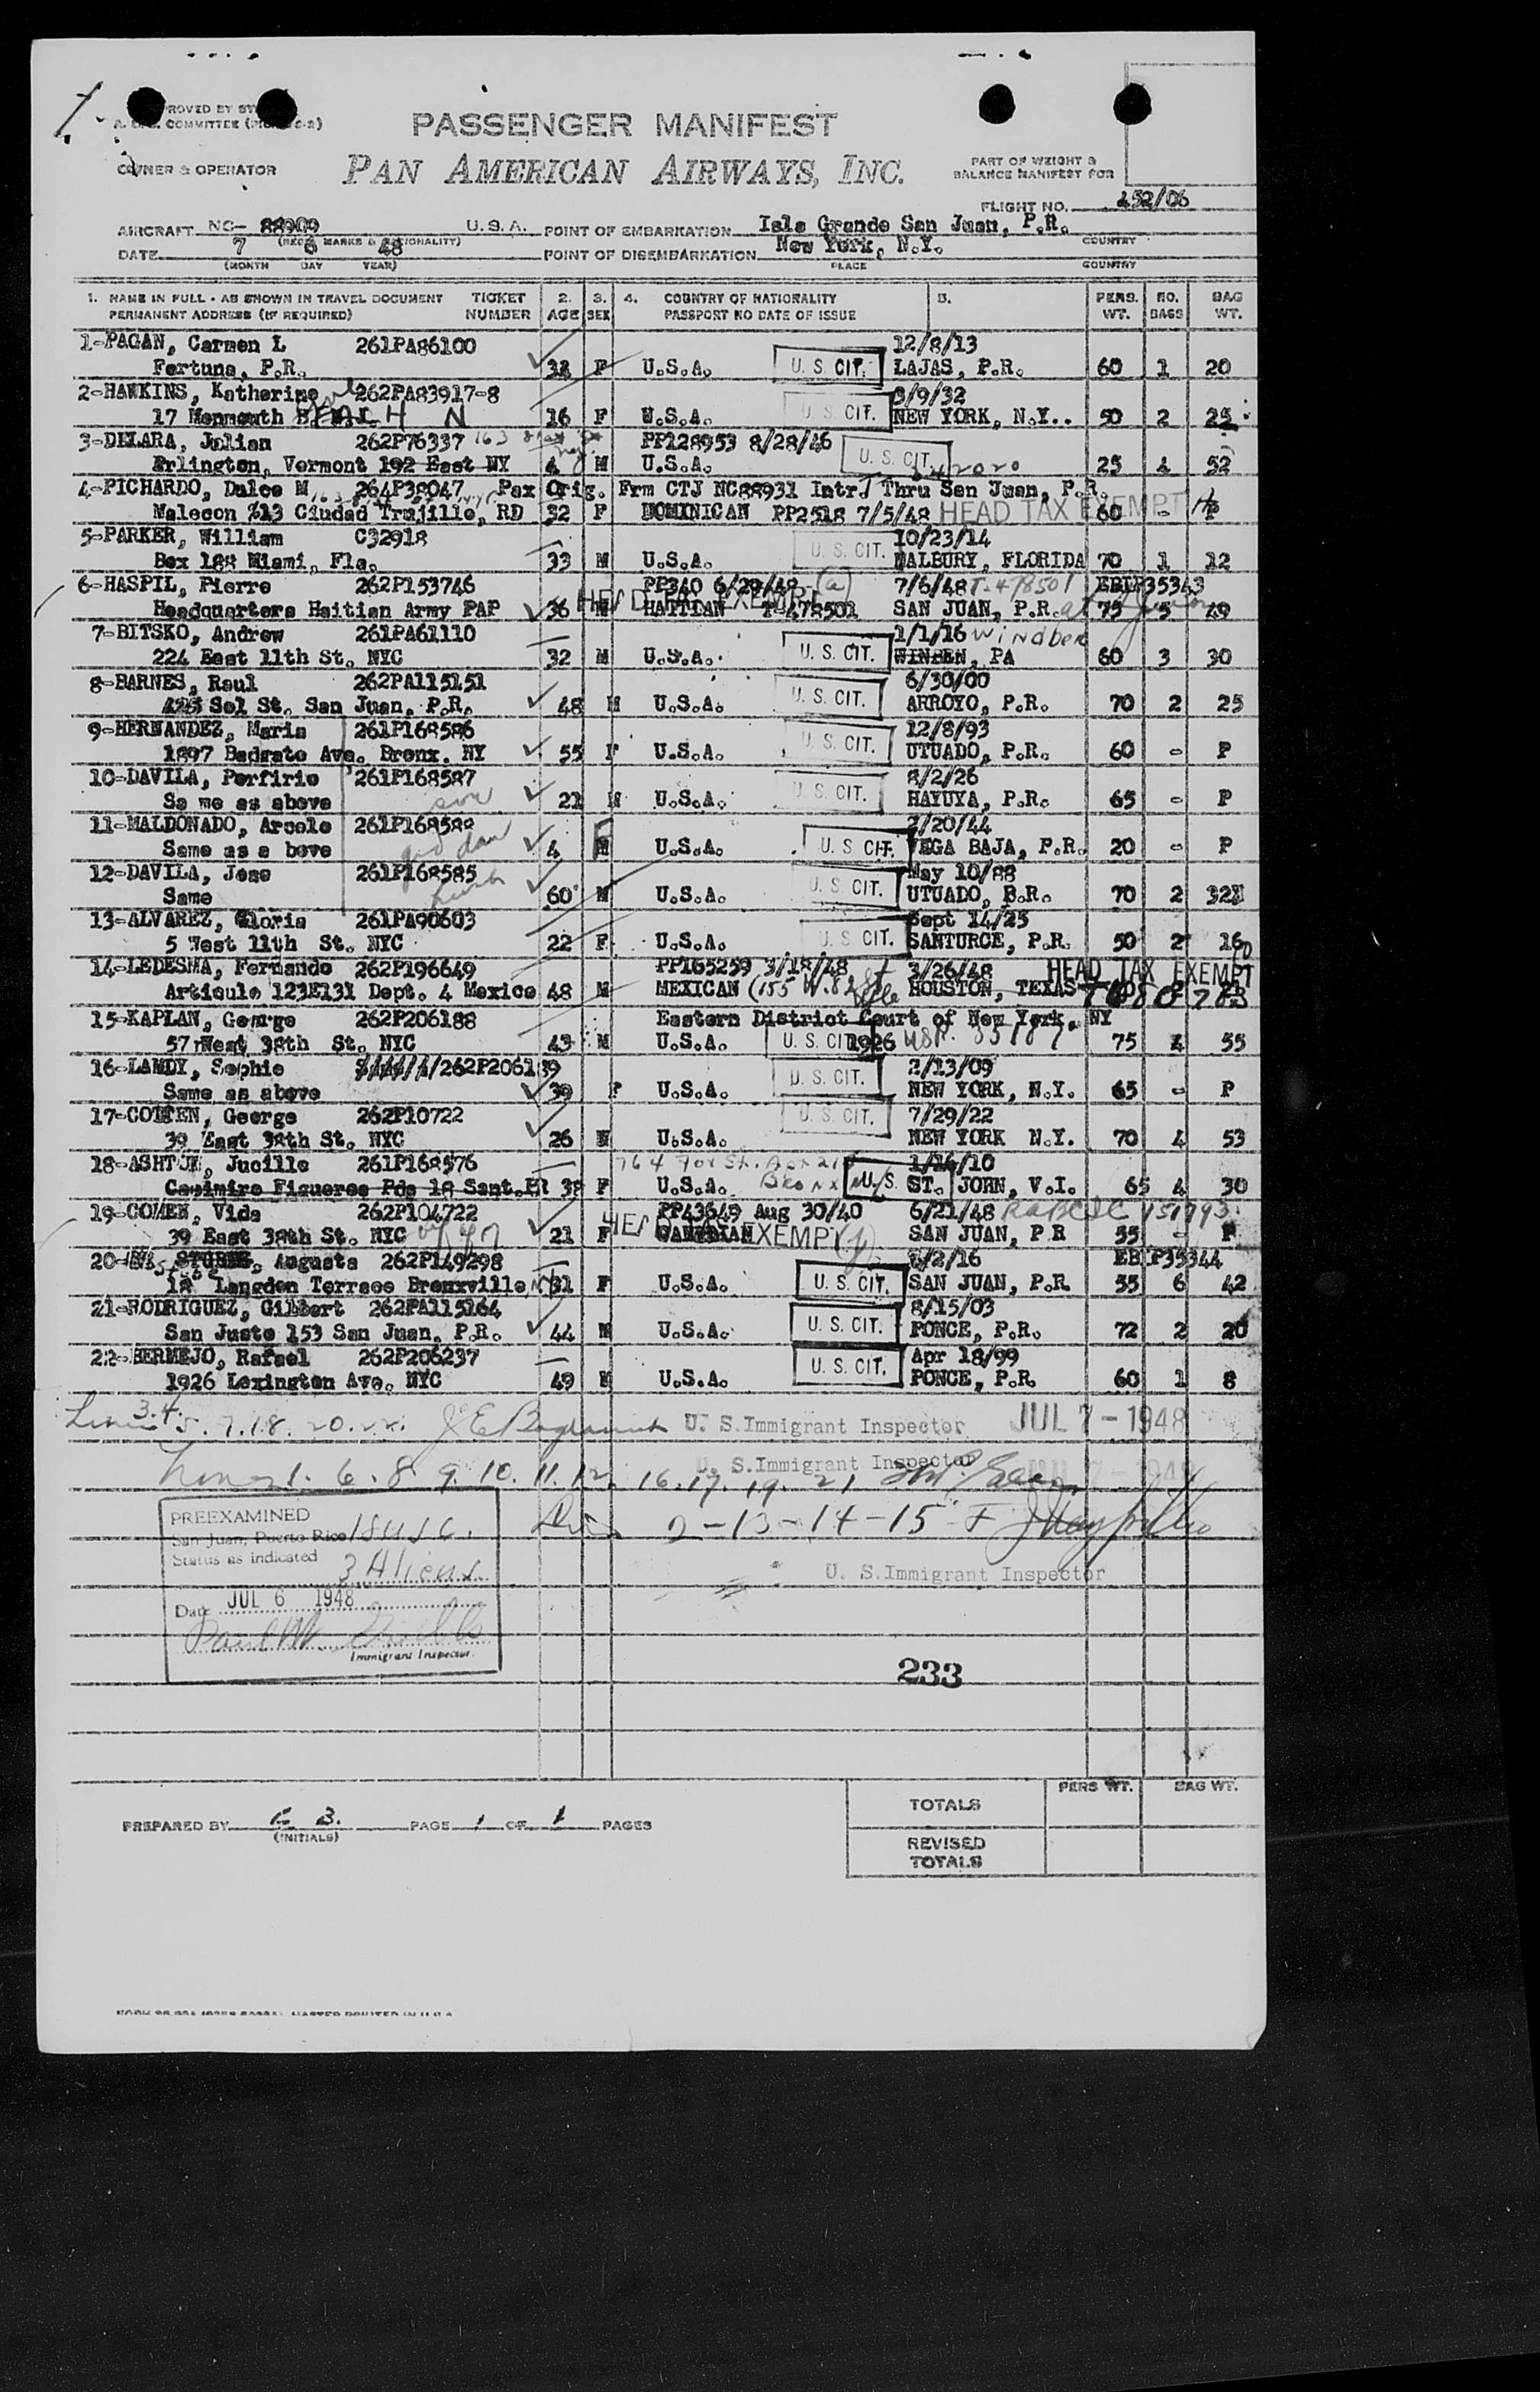 PASSENGER MANIFEST
PAN AMERICAN AIRWAYS, INC.
COMMITTEE
OWNER & OPERATOR
PART OF WEIGHT &
BALANCE MANIFEST FOR
FLIGHT NO. 452/06
AIRCRAFT NC- 88909 U.S.A. POINT OF EMBARKATION Isla Grande San Juan, P.R.
DATE 7 6 48 POINT OF DISEMBARKATION New York, N.Y. COUNTRY
(MONTH DAY YEAR) PLACE COUNTRY
1. NAME IN FULL - AS SHOWN IN TRAVEL DOCUMENT TICKET 2. 3. 4. COUNTRY OF NATIONALITY 5. PERS. NO. BAG
PERMANENT ADDRESS (IF REQUIRED) NUMBER AGE SEX PASSPORT NO DATE OF ISSUE WT. BAGS WT.
1-PAGAN, Carmen L 261PA86100 12/8/13
Fortuna, P.R. F U.S.A. U. S. CIT. LAJAS, P.R. 60 1 20
2-HAWKINS, Katherine 262PA83917-8 3/9/32
17 Monmouth BEACH N 16 F U.S.A. U. S. CIT. NEW YORK, N.Y.. 50 2 25
3-DELARA, Julian 262P76337 163 PP128953 8/28/46
Arlington, Vermont 192 East NY 4 M U.S.A. U. S. CIT. 25 4 52
4-PICHARDO, Dulce M 264P38047 Pax Orig. Frm CTJ NC88931 Intr. Thru San Juan, P.R.
Malecon #13 Ciudad Trujillo, RD 32 F DOMINICAN PP2518 7/5/48 HEAD TAX EXEMPT 60 - P
5-PARKER, William C32918 10/23/14
Box 188 Miami, Fla. 33 M U.S.A. U. S. CIT. MALBURY, FLORIDA 70 1 12
6-HASPIL, Pierre 262P153746 PP340 6/29/48 (a) 7/6/48 T-478501 EBIP35343
Headquarters Haitian Army PAP 36 M HEAD TAX EXEMPT HAITIAN T-478501 SAN JUAN, P.R. 75 5 49
7-BITSKO, Andrew 261PA61110 1/1/16 windber
224 East 11th St. NYC 32 M U.S.A. U. S. CIT. WINBEN, PA 60 3 30
8-BARNES, Raul 262PA115151 6/30/00
425 Sol St. San Juan, P.R. 48 M U.S.A. U. S. CIT. ARROYO, P.R. 70 2 25
9-HERNANDEZ, Maria 261P168586 12/8/93
1897 Badgate Ave. Bronx. NY 55 F U.S.A. U. S. CIT. UTUADO, P.R. 60 - P
10-DAVILA, Porfirio 261P168587 8/2/26
Sa me as above son 21 M U.S.A. U. S. CIT. HAYUYA, P.R. 65 - P
11-MALDONADO, Arcole 261P168588 2/20/44
Same as a bove gd dau 4 F U.S.A. U. S CIT. VEGA BAJA, P.R. 20 - P
12-DAVILA, Jose 261P168585 May 10/88
Same husb 60 M U.S.A. U. S. CIT. UTUADO, P.R. 70 2 32
13-ALVAREZ, Gloria 261PA90603 Sept 14/25
5 West 11th St. NYC 22 F U.S.A. U. S CIT. SANTURCE, P.R. 50 2 16
14-LEDESMA, Fernando 262P196649 PP165259 3/18/48 3/26/48 HEAD TAX EXEMPT
Articulo 123E131 Dept. 4 Mexico 48 M MEXICAN (155 W. 82 St HOUSTON, TEXAS
15-KAPLAN, George 262P206188 Eastern District Court of New York, NY
57 West 38th St. NYC 43 M U.S.A. U. S CIT 1926 75 4 55
16-LANDY, Sophie 262P206189 2/13/09
Same as above 39 F U.S.A. U. S. CIT. NEW YORK, N.Y. 65 - P
17-COHEN, George 262P10722 7/29/22
39 East 38th St. NYC 26 M U.S.A. U. S. CIT. NEW YORK N.Y. 70 4 53
18-ASHTON, Jucille 261P168576 764 Fox St. 1/16/10
Casimiro Figueroa Pda 18 Sant. 38 F U.S.A. Bronx U. S. ST. JOHN, V.I. 65 4 30
19-COHEN, Vida 262P104722 PP43649 Aug 30/40 6/21/48
39 East 38th St. NYC 21 F HEAD EXEMPT SAN JUAN, P R 55 - P
20- Augusta 262P149298 /2/16 EBIP35344
Langdon Terrace Bronxville 31 F U.S.A. U. S. CIT. SAN JUAN, P.R 55 6 42
21-RODRIGUEZ, Gilbert 262PA115164 8/15/03
San Justo 153 San Juan, P.R. 44 M U.S.A. U. S. CIT. PONCE, P.R. 72 2 20
22-BERMEJO, Rafael 262P206237 Apr 18/99
1926 Lexington Ave. NYC 49 M U.S.A. U. S. CIT. PONCE, P.R. 60 1 8
Lines 3.4. 5. 7. 18. 20. 22. U. S.Immigrant Inspector JUL 7 - 1948
U. S.Immigrant Inspector JUL 7 - 1948
Lines 1. 6. 8. 9. 10. 11. 12. 16. 17. 19. 21
2-13-14-15
U. S.Immigrant Inspector
PREEXAMINED
San Juan, Puerto Rico 18 USC.
Status as indicated
3 Aliens
Date JUL 6 1948
Immigrant Inspector.
233
PERS WT. BAG WT.
TOTALS
REVISED
TOTALS
PREPARED BY B. PAGE 1 OF 1 PAGES
(INITIALS)